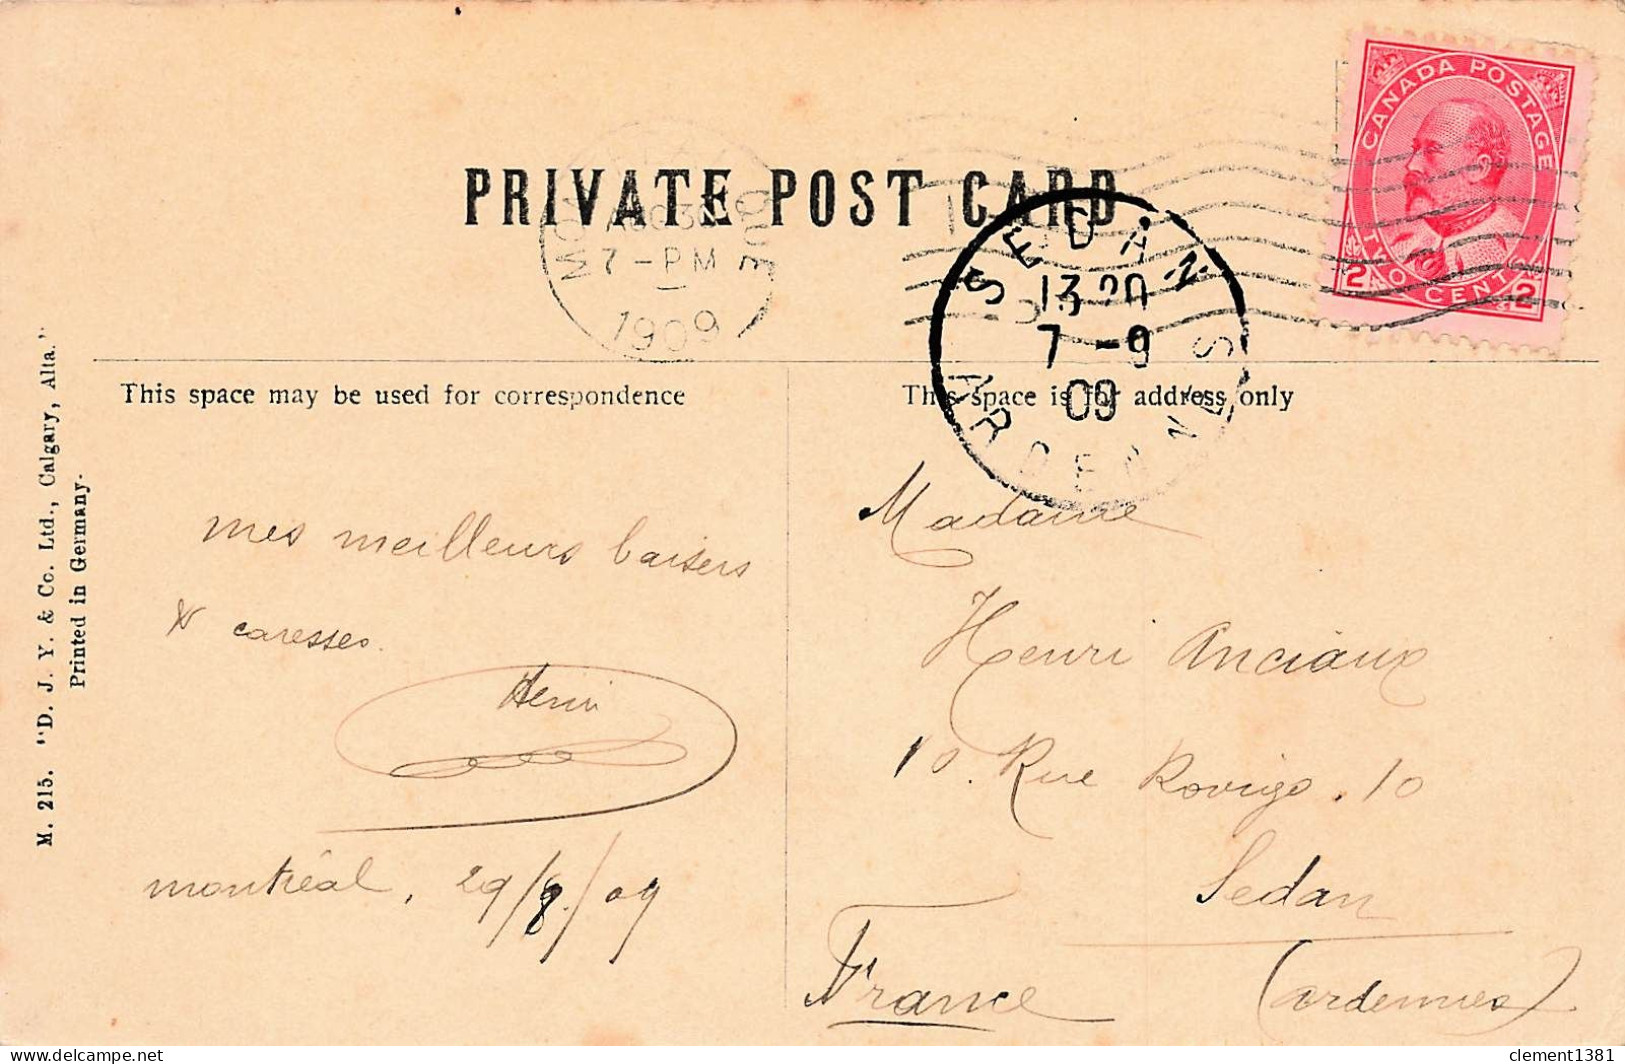 PRIVATE POST CARD
CANADA POSTAGE
2 TWO CENTS 2
AUG 30
7-PM
1909
QUE
SEDAN
13 20
7 -9
09
ARDENNES
This space may be used for correspondence
This space is for address only
mes meilleurs baisers
& caresses.
Henri
montréal, 29/8/09
Madame
Henri Anciaux
10. Rue Rovigo. 10
Sedan
France (ardennes)
M. 215. "D. J. Y. & Co. Ltd., Calgary, Alta."
Printed in Germany.
delcampe.net
clement1381